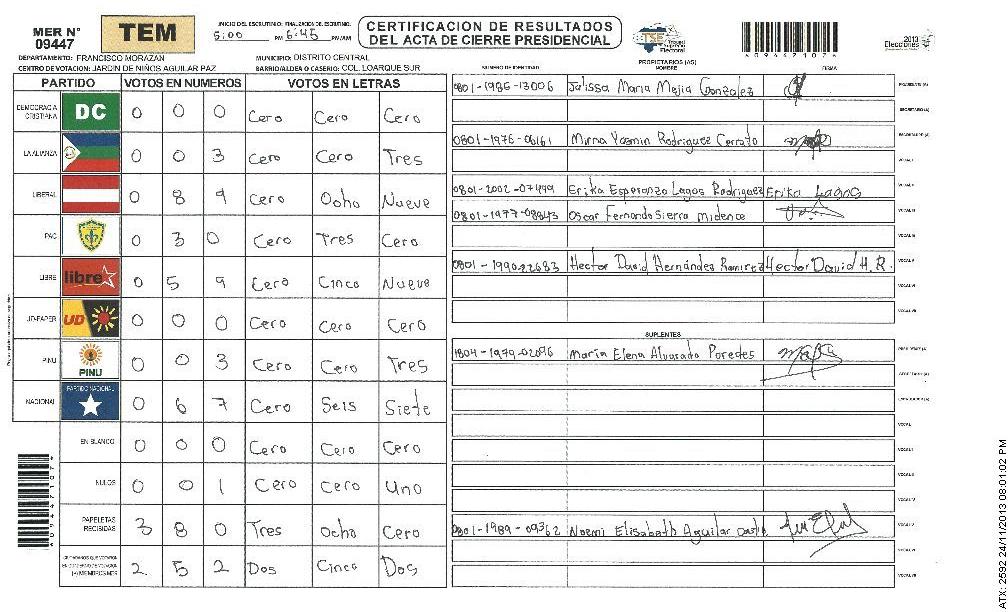 MER N° 09447
TEM
INICIO DEL ESCRUTINIO: FINALIZACION DE ESCRUTINIO:
5:00 PM 6:45 PM/AM
CERTIFICACION DE RESULTADOS
DEL ACTA DE CIERRE PRESIDENCIAL
TSE Tribunal Supremo Electoral
2013
Elecciones
DEPARTAMENTO: FRANCISCO MORAZAN
MUNICIPIO: DISTRITO CENTRAL
CENTRO DE VOTACION: JARDIN DE NIÑOS AGUILAR PAZ
BARRIO/ALDEA O CASERIO: COL. LOARQUE SUR
PROPIETARIOS (AS)
NUMERO DE IDENTIDAD NOMBRE FIRMA
PARTIDO VOTOS EN NUMEROS VOTOS EN LETRAS
DEMOCRACIA CRISTIANA DC 0 0 0 Cero Cero Cero
LA ALIANZA 0 0 3 Cero Cero Tres
LIBERAL 0 8 9 Cero Ocho Nueve
PAC 0 3 0 Cero Tres Cero
LIBRE libre 0 5 9 Cero Cinco Nueve
UD-FAPER UD 0 0 0 Cero Cero Cero
PINU PINU 0 0 3 Cero Cero Tres
NACIONAL PARTIDO NACIONAL 0 6 7 Cero Seis Siete
EN BLANCO 0 0 0 Cero Cero Cero
NULOS 0 0 1 Cero Cero Uno
PAPELETAS RECIBIDAS 3 8 0 Tres Ocho Cero
CIUDADANOS QUE VOTARON 2 5 2 Dos Cinco Dos
0801-1986-13006 Julissa Maria Mejia Gonzalez PRESIDENTE (A)
SECRETARIO (A)
0801-1976-06161 Mirna Yasmin Rodriguez Cerrato ESCRUTADOR (A)
VOCAL I
0801-2002-07499 Erika Esperanza Lagos Rodriguez Erika Lagos VOCAL II
0801-1977-08843 Oscar Fernando Sierra midence VOCAL III
VOCAL IV
0801-1990-22683 Hector David Hernándes Ramirez Hector David H.R. VOCAL V
VOCAL VI
VOCAL VII
SUPLENTES
1804-1979-02096 María Elena Alvarado Paredes PRESIDENTE (A)
SECRETARIO (A)
ESCRUTADOR (A)
VOCAL I
VOCAL II
VOCAL III
VOCAL IV
0801-1989-09362 Noemi Elisabeth Aguilar VOCAL V
VOCAL VI
VOCAL VII
ATX: 2592 24/11/2013 08:01:02 PM